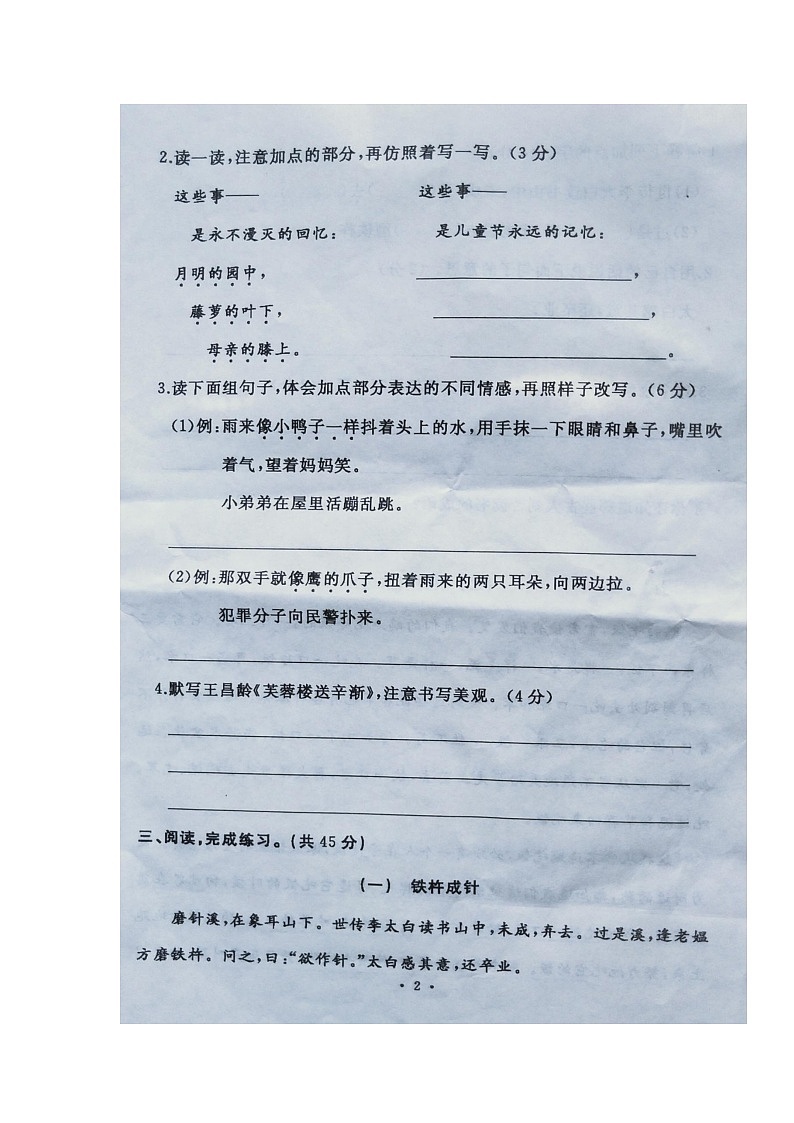 2.读一读,注意加点的部分,再仿照着写一写。(3 分)
这些事—— 这些事——
是永不漫灭的回忆: 是儿童节永远的记忆:
月明的园中, ,
藤萝的叶下, ,
母亲的膝上。 。
3.读下面组句子,体会加点部分表达的不同情感,再照样子改写。(6 分)
(1)例:雨来像小鸭子一样抖着头上的水,用手抹一下眼睛和鼻子,嘴里吹
着气,望着妈妈笑。
小弟弟在屋里活蹦乱跳。
(2)例:那双手就像鹰的爪子,扭着雨来的两只耳朵,向两边拉。
犯罪分子向民警扑来。
4.默写王昌龄《芙蓉楼送辛渐》,注意书写美观。(4 分)
三、阅读,完成练习。(共 45 分)
(一) 铁杵成针
磨针溪,在象耳山下。世传李太白读书山中,未成,弃去。过是溪,逢老媪
方磨铁杵。问之,曰:“欲作针。”太白感其意,还卒业。
• 2 •